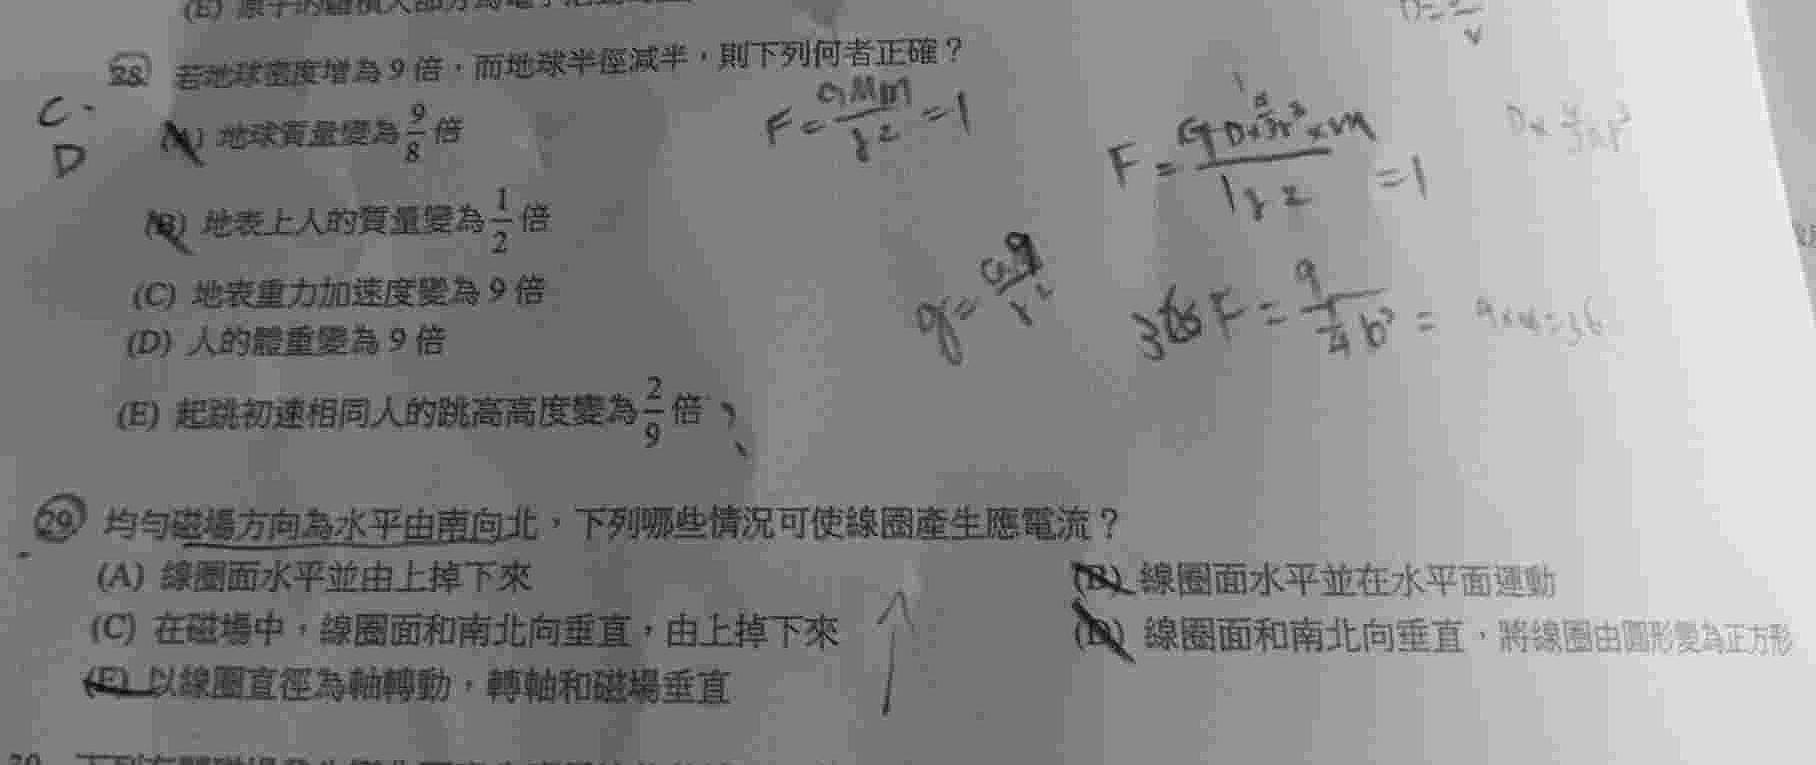 (E) 原子的體積大部分為電子
28. 若地球密度增為9倍，而地球半徑減半，則下列何者正確？
C.
D
(A) 地球質量變為 9/8 倍
(B) 地表上人的質量變為 1/2 倍
(C) 地表重力加速度變為9倍
(D) 人的體重變為9倍
(E) 起跳初速相同人的跳高高度變為 2/9 倍
F = GMm/r2 = 1
= 1
D×
36 F = 9
9×4=36
29. 均勻磁場方向為水平由南向北，下列哪些情況可使線圈產生應電流？
(A) 線圈面水平並由上掉下來
(B) 線圈面水平並在水平面運動
(C) 在磁場中，線圈面和南北向垂直，由上掉下來
(D) 線圈面和南北向垂直，將線圈由圓形變為正方形
(E) 以線圈直徑為軸轉動，轉軸和磁場垂直
30. 下列有關磁場